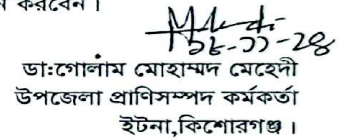 করবেন।
২৮-১১-২৪
ডা:গোলাম মোহাম্মদ মেহেদী
উপজেলা প্রাণিসম্পদ কর্মকর্তা
ইটনা,কিশোরগঞ্জ।